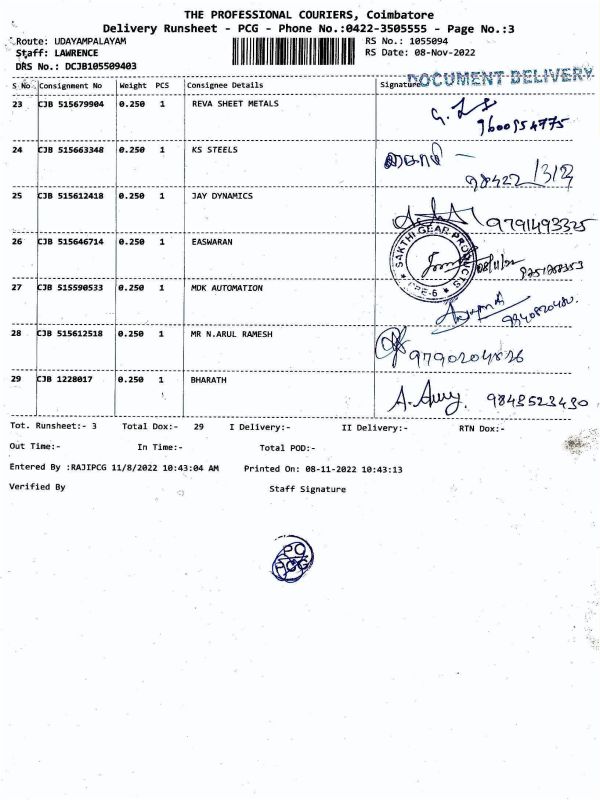 THE PROFESSIONAL COURIERS, Coimbatore
Delivery Runsheet - PCG - Phone No.:0422-3505555 - Page No.:3
Route: UDAYAMPALAYAM RS No.: 1055094
Staff: LAWRENCE RS Date: 08-Nov-2022
DRS No.: DCJB105509403
DOCUMENT DELIVERY
S No Consignment No Weight PCS Consignee Details Signature
23 CJB 515679904 0.250 1 REVA SHEET METALS
9600954775
24 CJB 515663348 0.250 1 KS STEELS
25 CJB 515612418 0.250 1 JAY DYNAMICS
9791493325
26 CJB 515646714 0.250 1 EASWARAN
SAKTHI GEAR PRODUCTS
CPE-6
27 CJB 515590533 0.250 1 MDK AUTOMATION
28 CJB 515612518 0.250 1 MR N.ARUL RAMESH
29 CJB 1228017 0.250 1 BHARATH
9843523430
Tot. Runsheet:- 3 Total Dox:- 29 I Delivery:- II Delivery:- RTN Dox:-
Out Time:- In Time:- Total POD:-
Entered By :RAJIPCG 11/8/2022 10:43:04 AM Printed On: 08-11-2022 10:43:13
Verified By Staff Signature